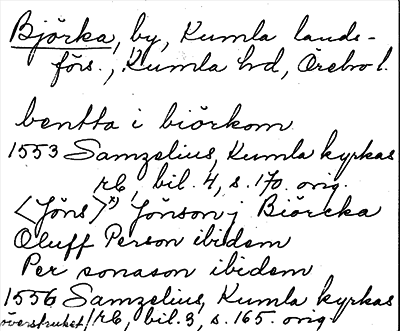 Björka, by, Kumla lands-
förs., Kumla hd, Örebro l.
bentta i biörkom
1553 Samzelius, Kumla kyrkas
rb, bil. 4, s. 170. orig.
<Jöns>x) Jönson j Biörcka
Oluff Person ibidem
Per sonason ibidem
1556 Samzelius, Kumla kyrkas
överstruket/rb, bil. 3, s. 165. orig